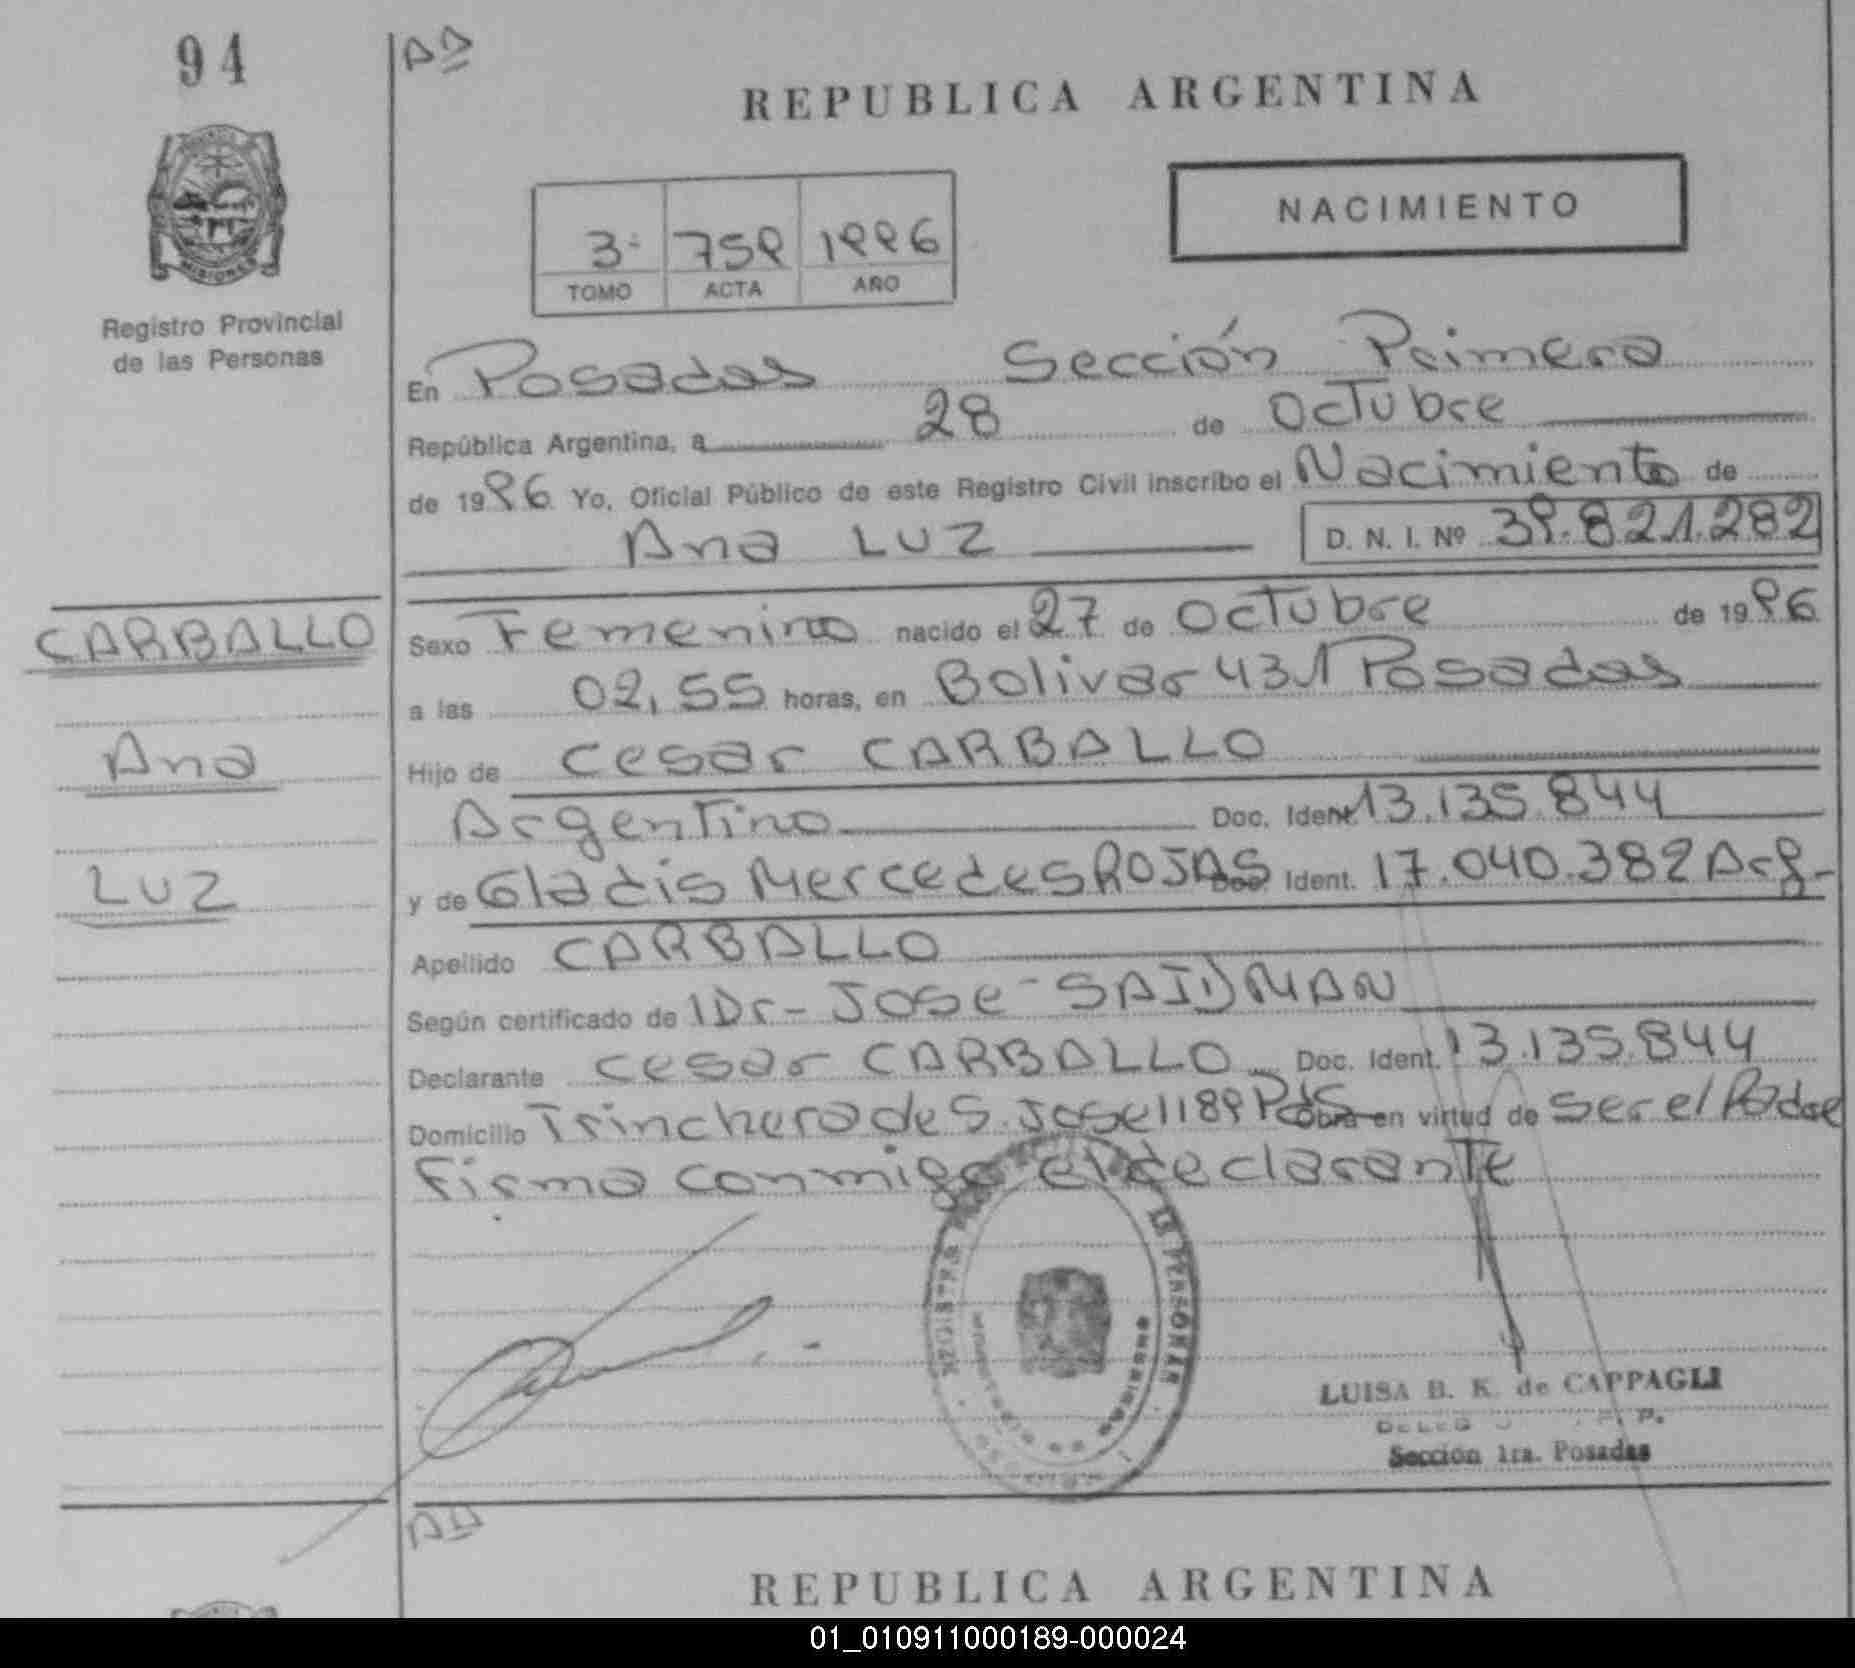 94
AA
REPUBLICA ARGENTINA
MISIONES
NACIMIENTO
3- 759 1996
TOMO ACTA AÑO
Registro Provincial
de las Personas
En Posadas Sección Primera
República Argentina, a 28 de Octubre
de 1996 Yo, Oficial Público de este Registro Civil inscribo el Nacimiento de
Ana LUZ D. N. I. Nº 39.821.282
CARBALLO
Ana
LUZ
Sexo Femenino nacido el 27 de Octubre de 1996
a las 02,55 horas, en Bolivar 431 Posadas
Hijo de Cesar CARBALLO
Argentino Doc. Ident. 13.135.844
y de Gladis Mercedes ROJAS Doc. Ident. 17.040.382 Arg-
Apellido CARBALLO
Según certificado de Dr- Jose SAIDMAN
Declarante Cesar CARBALLO Doc. Ident. 13.135.844
Domicilio Trinchera de S. Jose 1189 Pds Obra en virtud de ser el Padre
Firma conmigo el declarante
REGISTRO LAS PERSONAS
LUISA B. K. de CAPPAGLI
Sección 1ra. Posadas
AA
REPUBLICA ARGENTINA
01_010911000189-000024